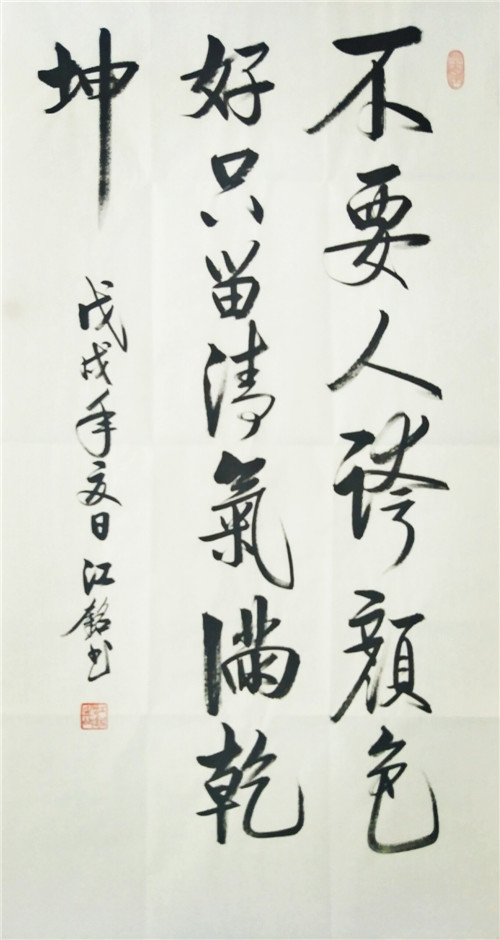 不要人誇顏色
好只留清氣滿乾
坤
戊戌年夏日江銘书